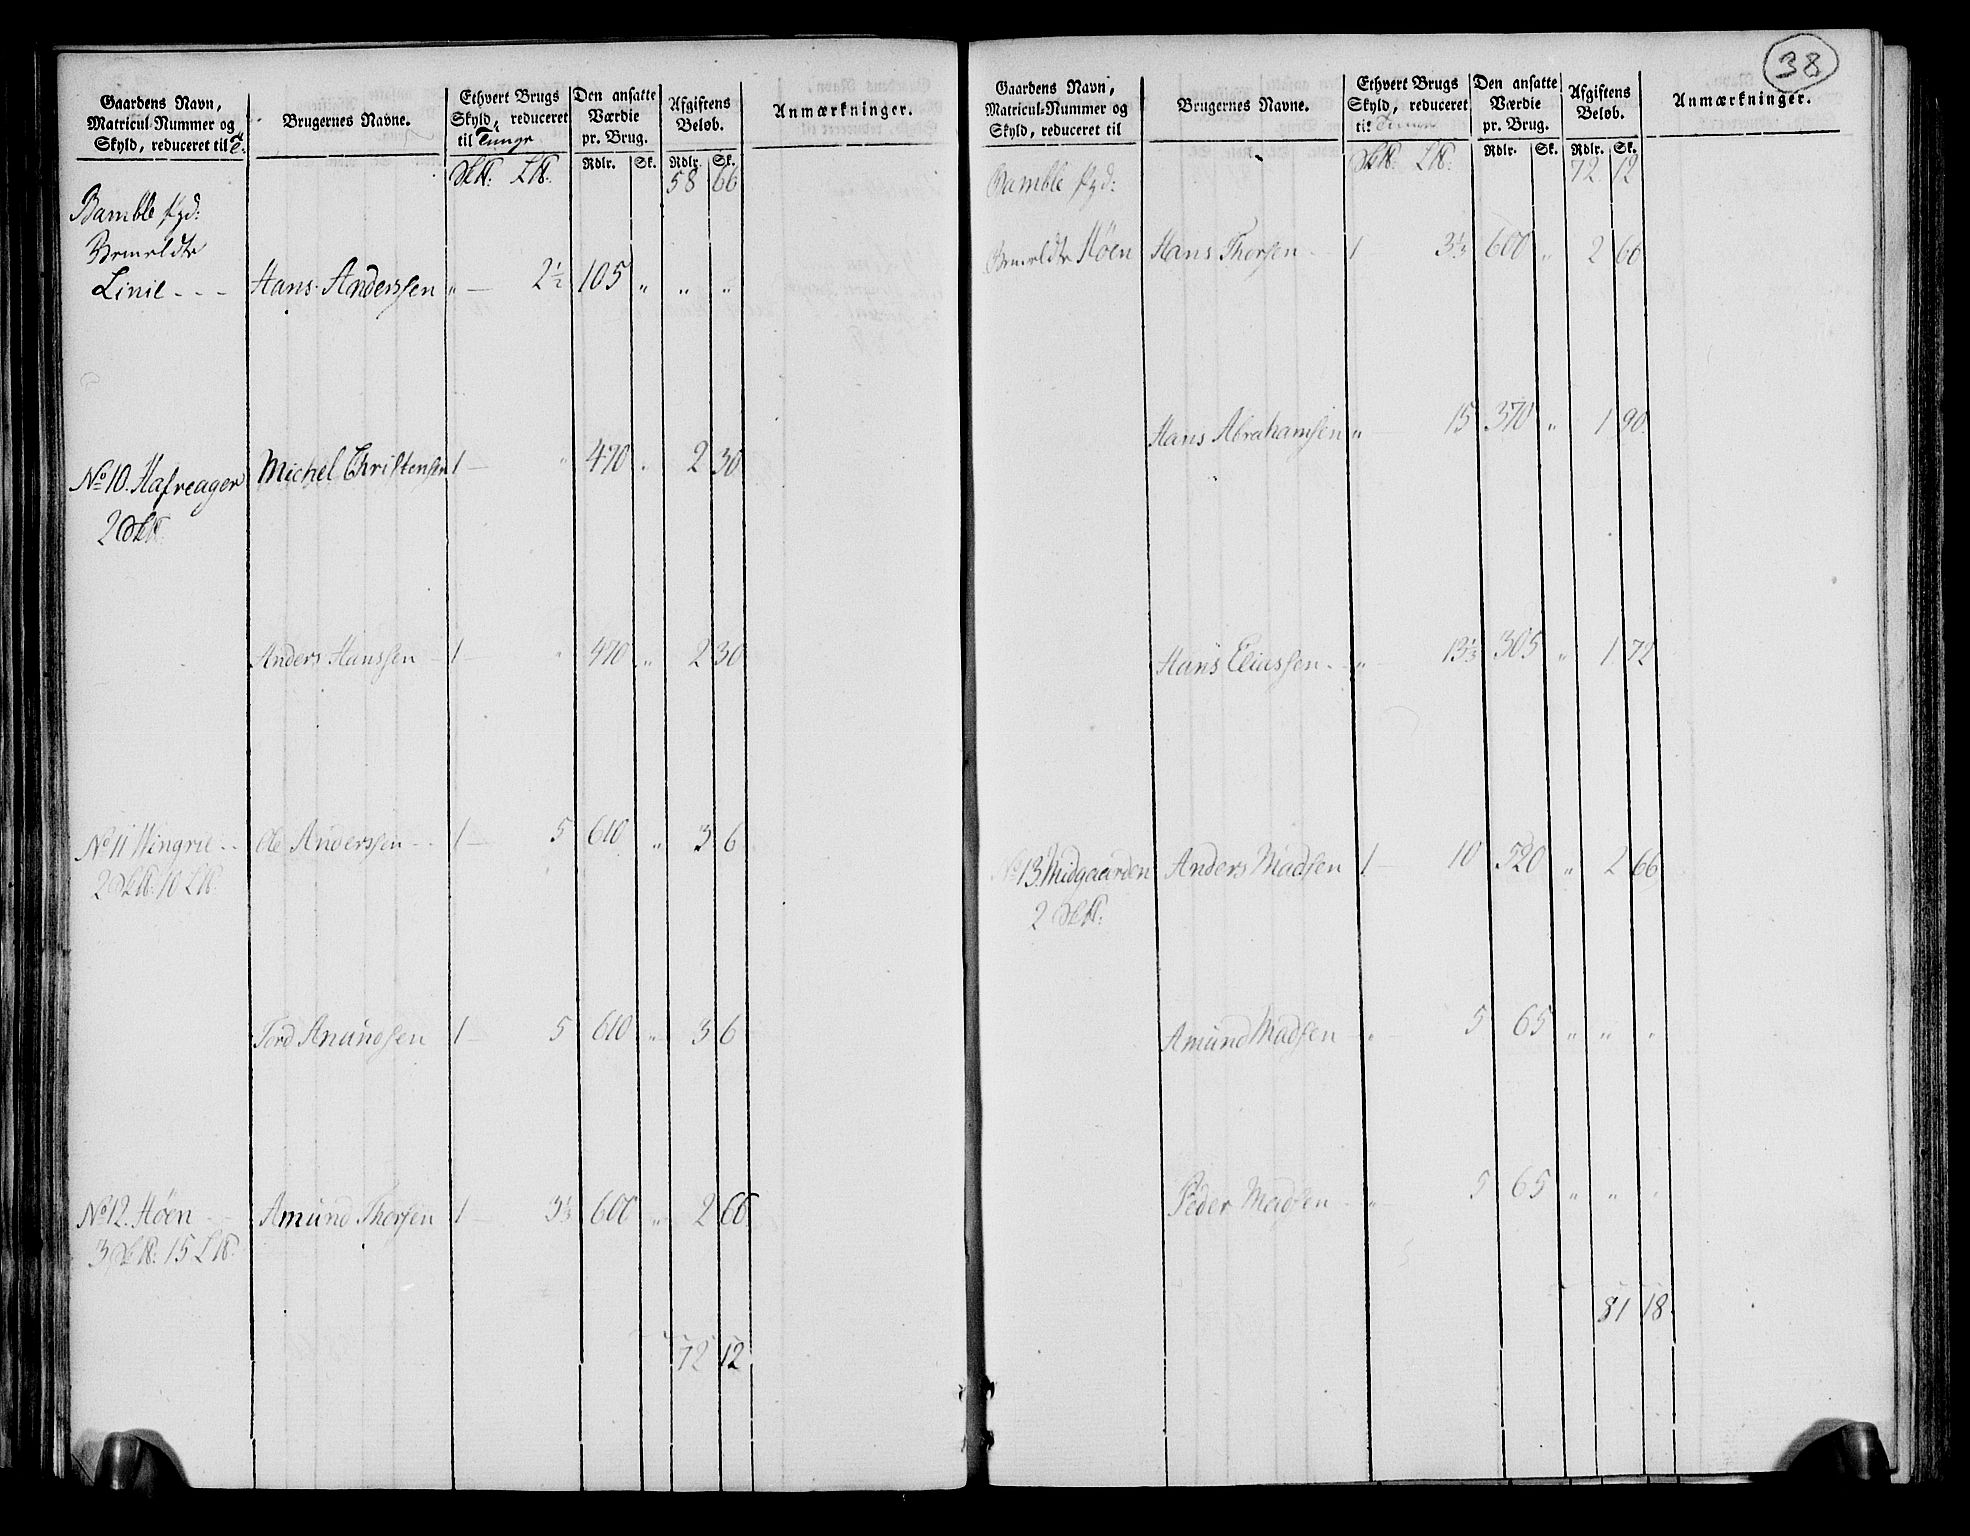 38
Gaardens Navn, Matricul-Nummer og Skyld, reduceret til T.
Brugernes Navne.
Ethvert Brugs Skyld, reduceret til Tunge
Den ansatte Værdie pr. Brug.
Afgiftens Beløb.
Anmærkninger.
Rdlr. Sk. Rdlr. Sk.
S℔: L℔. 58 66
Bamble Pgd:
Bemeldte
Linie - - - Hans Anderssen „ — 2½ 105 „ „ „
No 10. Hafreager Michel Christensen 1 — „ 470 „ 2 30
2 S℔.
Anders Hanssen — 1 — „ 470 „ 2 30
No 11 Wingrie - - Ole Anderssen - - 1 — 5 610 „ 3 6
2 S℔: 10 L℔.
Tord Anundsen 1 — 5 610 „ 3 6
No 12. Høen - - Amund Thorsen 1 — 3⅓ 600 „ 2 66
3 S℔: 15 L℔.
72 12
Gaardens Navn, Matricul-Nummer og Skyld, reduceret til
Brugernes Navne.
Ethvert Brugs Skyld, reduceret til Tunge
Den ansatte Værdie pr. Brug.
Afgiftens Beløb.
Anmærkninger.
Rdlr. Sk. Rdlr. Sk.
S℔: L℔: 72 12
Bamble Pgd:
Bemeldte Høen Hans Thorsen - - 1 3⅓ 600 „ 2 66
Hans Abrahamsen „ 15 370 „ 1 90
Hans Eliassen - - „ 13⅓ 305 „ 1 72
No 13. Midgaarden Anders Madsen 1 — 10 520 „ 2 66
2 S℔:
Amund Madsen — „ 5 65 „ „ „
Peder Madsen - - „ 5 65 „ „ „
81 18